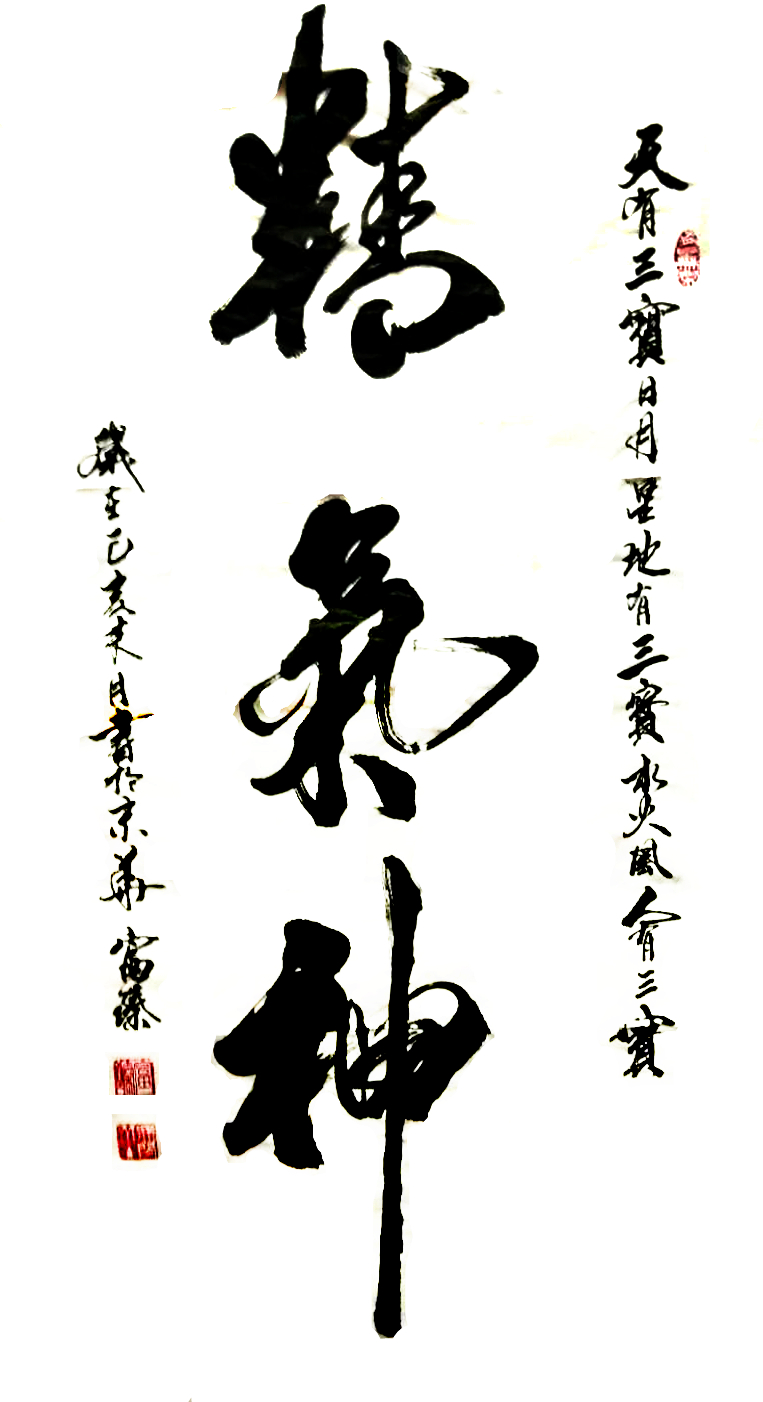 天有三寶日月星地有三寶水火風人有三寶
精氣神
歲在己亥末月書於京華 富臻